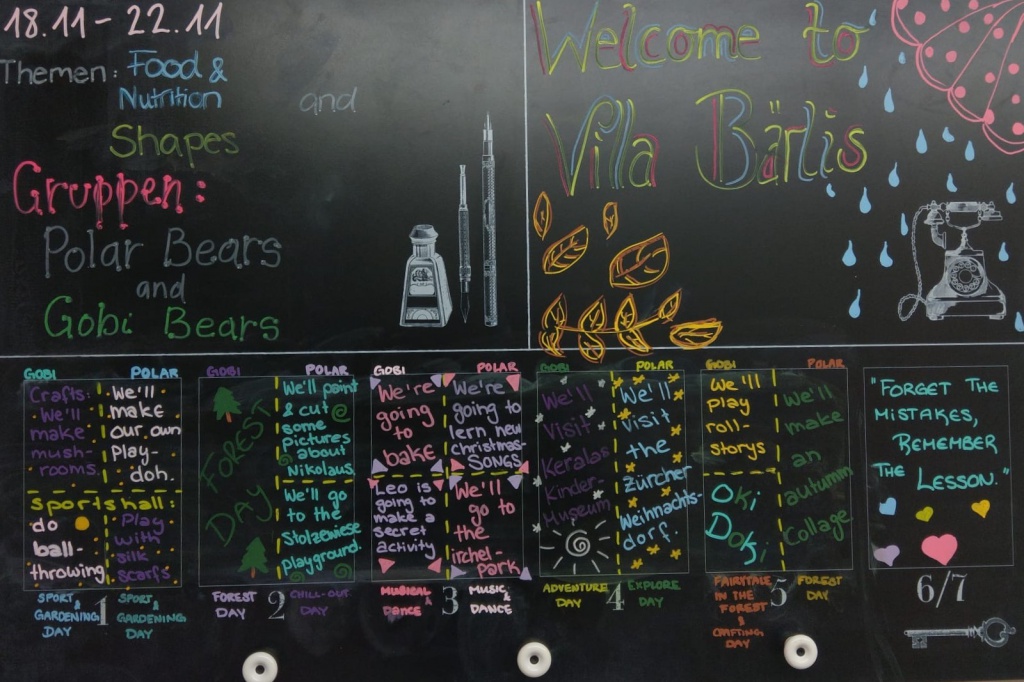 18.11 - 22.11
Themen: Food &
Nutrition
and
Shapes
Gruppen:
Polar Bears
and
Gobi Bears
Welcome to
Villa Bärlis
GOBI
POLAR
Crafts:
We'll
make
mush-
rooms.
We'll
make
our own
Play-
doh.
Sportshall:
do
ball-
throwing
Play
with
silk
scarfs
SPORT
&
GARDENING
DAY
1
SPORT
&
GARDENING
DAY
GOBI
POLAR
FOREST
DAY
We'll paint
& cut
some
pictures
about
Nikolaus.
We'll go
to the
Stolzewiese
playground.
FOREST
DAY
2
CHILL-OUT
DAY
GOBI
POLAR
We're
going
to
bake
We're
going to
lern new
christmas-
SONGS
Leo is
going to
make a
secret
activity
We'll
go to
the
irchel-
Park
MUSICAL
&
DANCE
3
MUSIC
&
DANCE
GOBI
POLAR
We'll
Visit
Keralas
Kinder-
Museum
We'll
visit
the
Zürcher
Weihnachts-
dorf.
ADVENTURE
DAY
4
EXPLORE
DAY
GOBI
POLAR
We'll
play
roll-
storys
Oki
Doki
We'll
make
an
autumn
Collage
FAIRYTALE
IN THE
FOREST
&
CRAFTING
DAY
5
FOREST
DAY
"FORGET THE
MISTAKES,
REMEMBER
THE LESSON."
6/7